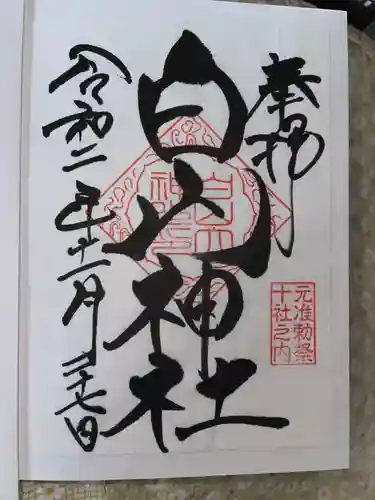 奉拝
白山神社
元准勅祭
十社之内
令和二年十一月二十七日